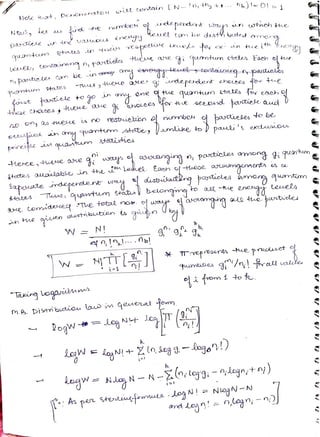 Note that, Denominator will contain (N-(n₁+n₂+ ... nₖ))! = 0! = 1
Now, let us find the number of independent ways in which the
particles in the various energy level can be distributed among
quantum states in their respective levels. for ex - in the iᵗʰ energy
levels, containing nᵢ particles there are gᵢ quantum states. Each of the
nᵢ particles can be in any
quantum states. Thus, there are gᵢ independent choices for the
first particle to go in any one of the quantum states for each of
these choices, there are gᵢ choices for the second particle and
so on, as there is no restriction of number of particles to be
occupied in any quantum state, (unlike to pauli's exclusion
principle in quantum statistics
Hence, there are gᵢⁿⁱ ways of arranging nᵢ particles among gᵢ quantum
states available in the iᵗʰ level. Each of these arrangements is a
separate independent way of distributing particles among quantum
states. Thus, quantum states belonging to all the energy levels
are considered. The total no. of ways of arranging all the particles
in the given distribution is given by
W = N! / n₁! n₂! ... nₖ! g₁ⁿ¹ g₂ⁿ² gₖⁿᵏ
W = N! π ᵢ₌₁ᵏ [gᵢⁿⁱ / nᵢ!]
* π represents the product of
quantities gᵢⁿⁱ/nᵢ! for all values
of i from 1 to k.
"Taking logarithms
M.B. Distribution law in general form
→ logW = log N! + log [π (gᵢⁿⁱ / nᵢ!)]
→ logW = log N! + Σ (nᵢ log gᵢ - log nᵢ!)
→ logW = N log N - N - Σ (nᵢ log gᵢ - nᵢ log nᵢ + nᵢ)
[∵ As per sterling formula. log N! = N log N - N
and log nᵢ! = nᵢ log nᵢ - nᵢ]